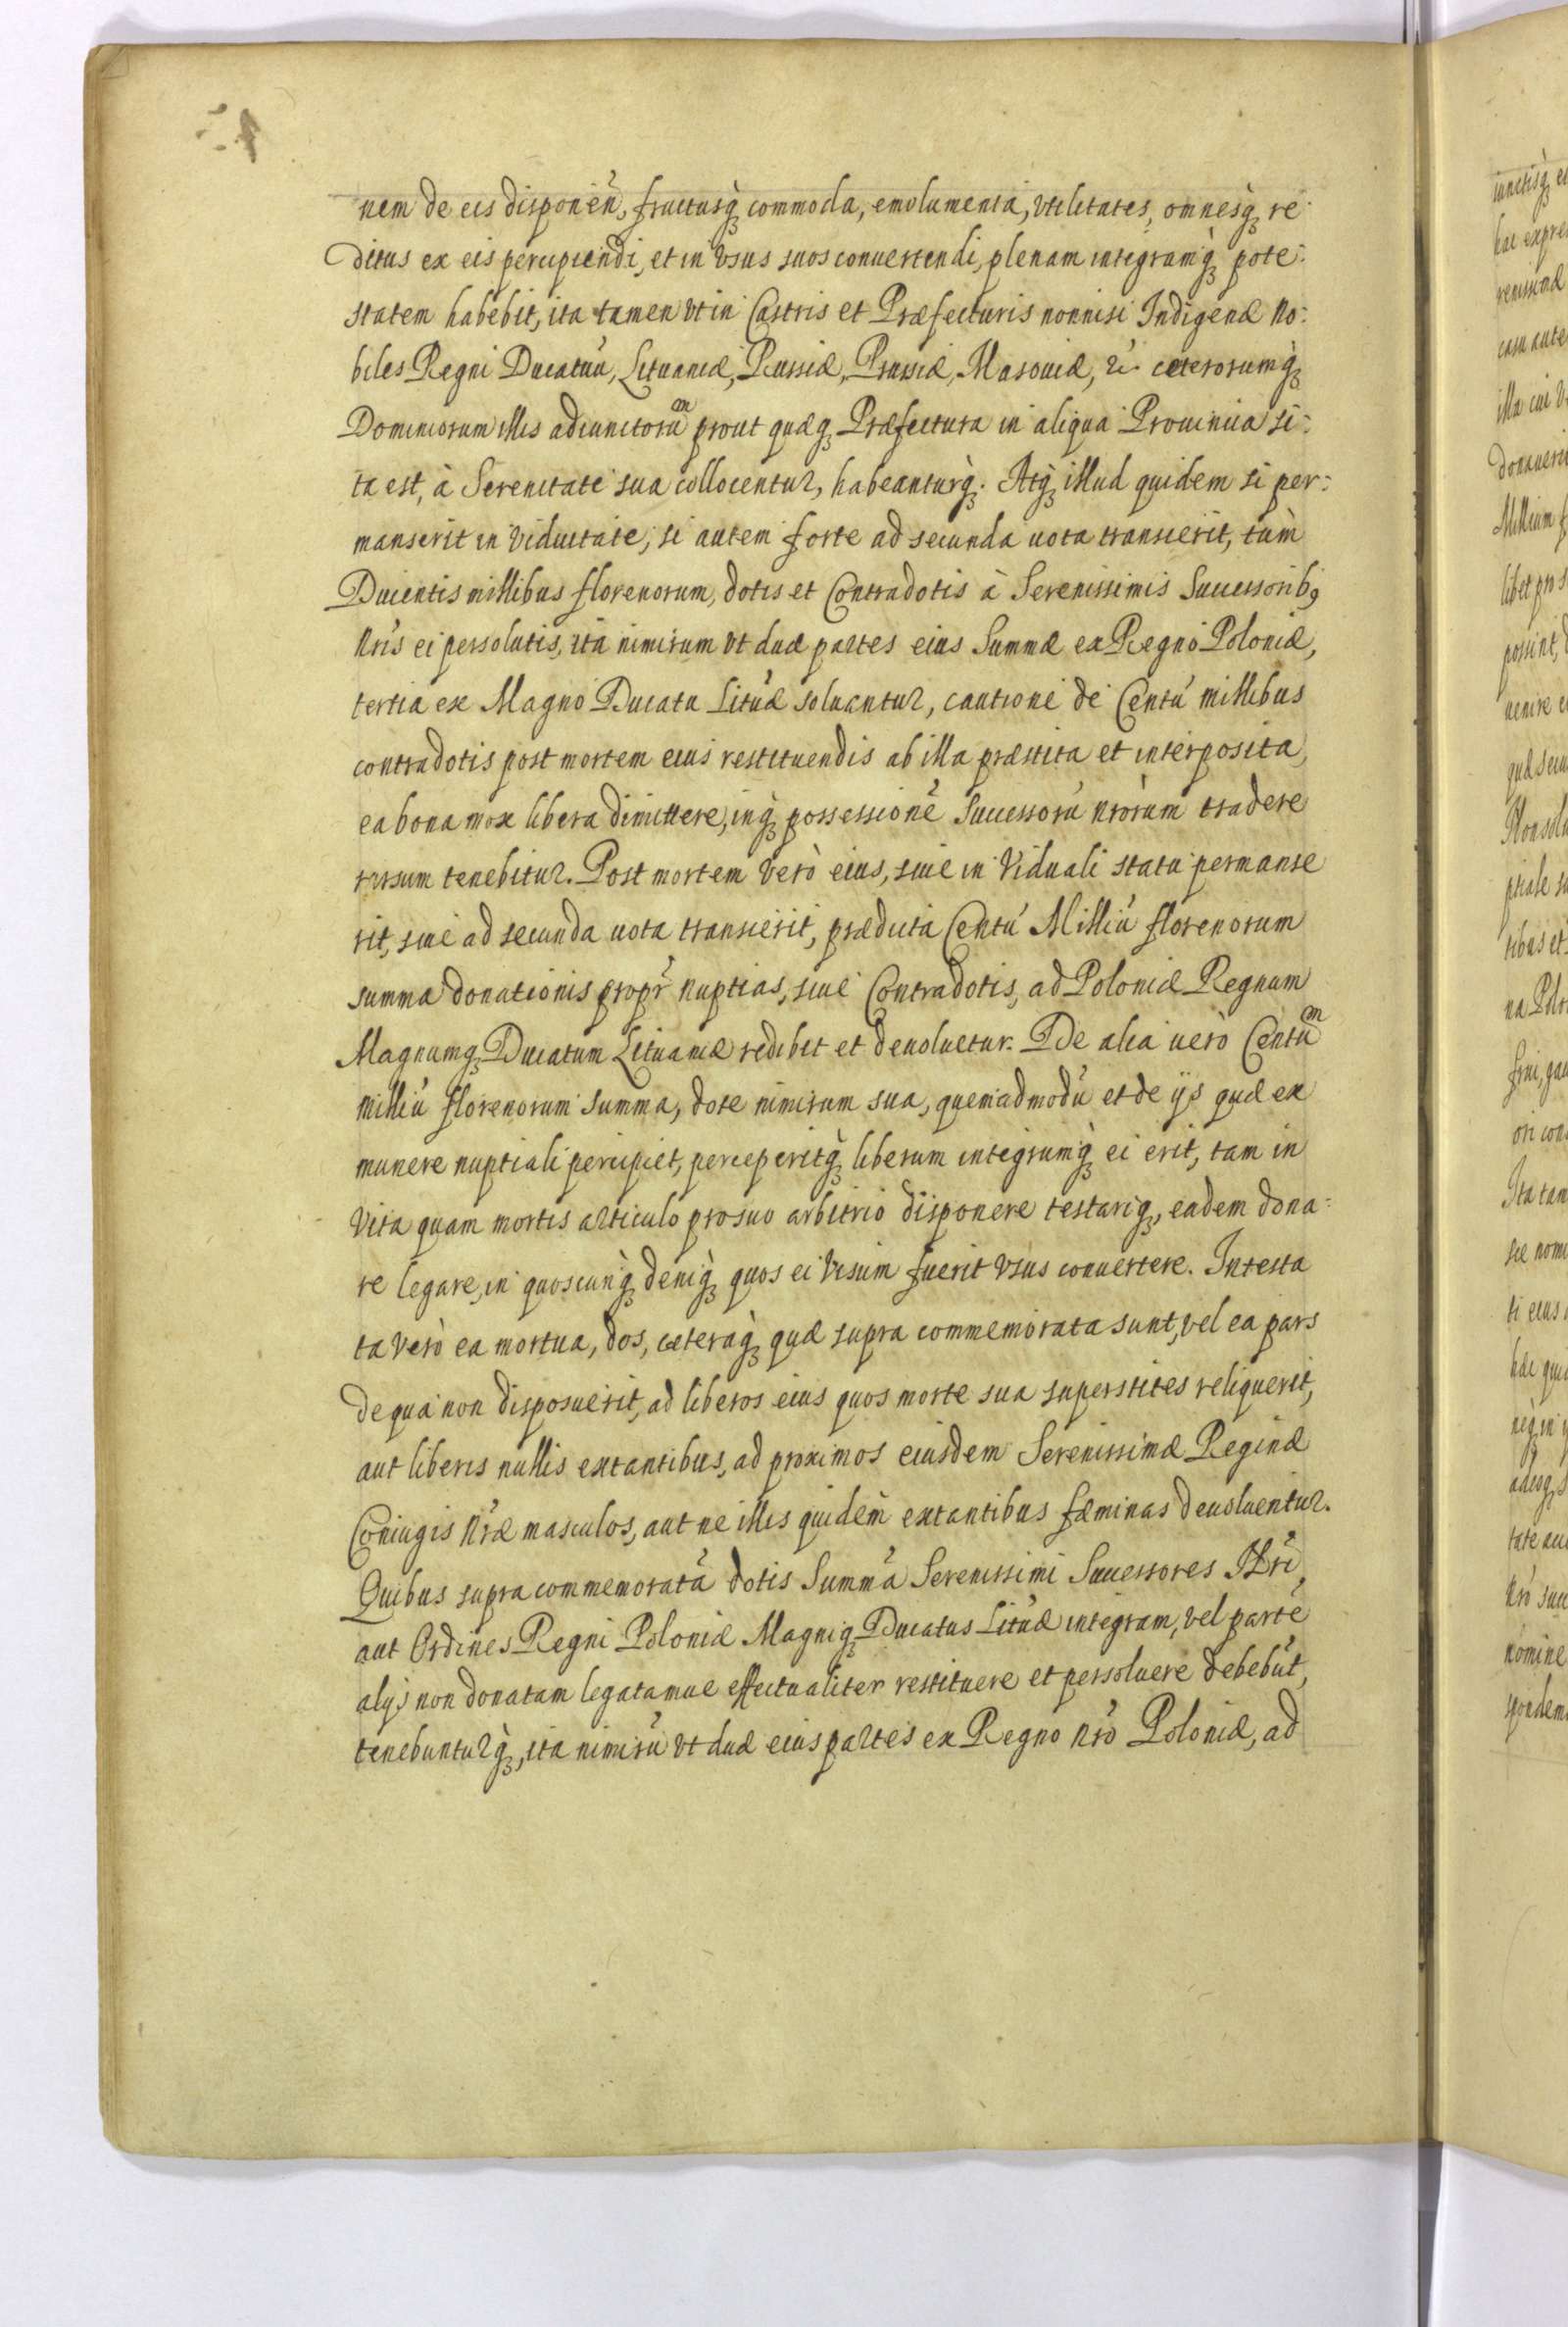 nem de eis disponēn, fructusq̀ꝫ commoda, emolumenta, vtilitates, omnesq̀ꝫ re
ditus ex eis percipiendi, et in vsus suos conuertendi, plenam integramq̀ꝫ pote:
statem habebit, ita tamen vt in Castris et Præfecturis nonnisi Indigenæ No:
biles Regni Ducatuū, Lituaniæ, Russiæ, Prussiæ, Masouiæ, &c ceterorumq̀ꝫ
Dominiorum illis adiunctorūm prout quæqꝫ Præfectura in aliqua Prouincia si:
ta est, à Serenitate sua collocentur, habeanturq̀ꝫ. Atq̀ꝫ illud quidem si per:
manserit in viduitate; si autem forte ad secunda uota transierit, tùm
Ducentis millibus florenorum, dotis et Contradotis à Serenissimis Successorib9
Nris ei persolutis, ita nimirum vt duæ partes eius Summæ ex Regno Poloniæ,
tertia ex Magno Ducatu Lituæ soluantur, cautione de Centū millibus
contradotis post mortem eius restituendis ab illa præstita et interposita,
ea bona mox libera dimittere, inq̀ꝫ possessionē Successorū nrorum tradere
rursum tenebitur. Post mortem verò eius, siue in Viduali statu permanse
rit, siue ad secunda uota transierit, prædicta Centū Milliū florenorum
summa donationis propr̃ nuptias, siue Contradotis, ad Poloniæ Regnum
Magnumqꝫ Ducatum Lituaniæ redibit et deuoluetur. De alia uerò Centūm
milliū florenorum summa, dote nimirum sua, quemadmodū et de ijs quæ ex
munere nuptiali percipiet, perceperitq̀ꝫ liberum integrumq̀ꝫ ei erit, tam in
vita quam mortis articulo pro suo arbitrio disponere testariqꝫ, eadem dona:
re legare, in quoscunq̀ꝫ deniq̀ꝫ quos ei visum fuerit vsus conuertere. Intesta
ta verò ea mortua, dos, cæteraq̀ꝫ quæ supra commemorata sunt, vel ea pars
de qua non disposuerit, ad liberos eius quos morte sua superstites reliquerit,
aut liberis nullis extantibus, ad proximos eiusdem Serenissimæ Reginæ
Coniugis Nræ masculos, aut ne illis quidem extantibus fæminas deuoluentur.
Quibus supra commemoratā dotis Summā Serenissimi Successores Nri,
aut Ordines Regni Poloniæ Magniqꝫ Ducatus Lituæ integram, vel partē
alijs non donatam legatamue effectualiter restituere et persoluere debebūt,
tenebunturq̀ꝫ, ita nimirū vt duæ eius partes ex Regno Nrō Poloniæ, ad